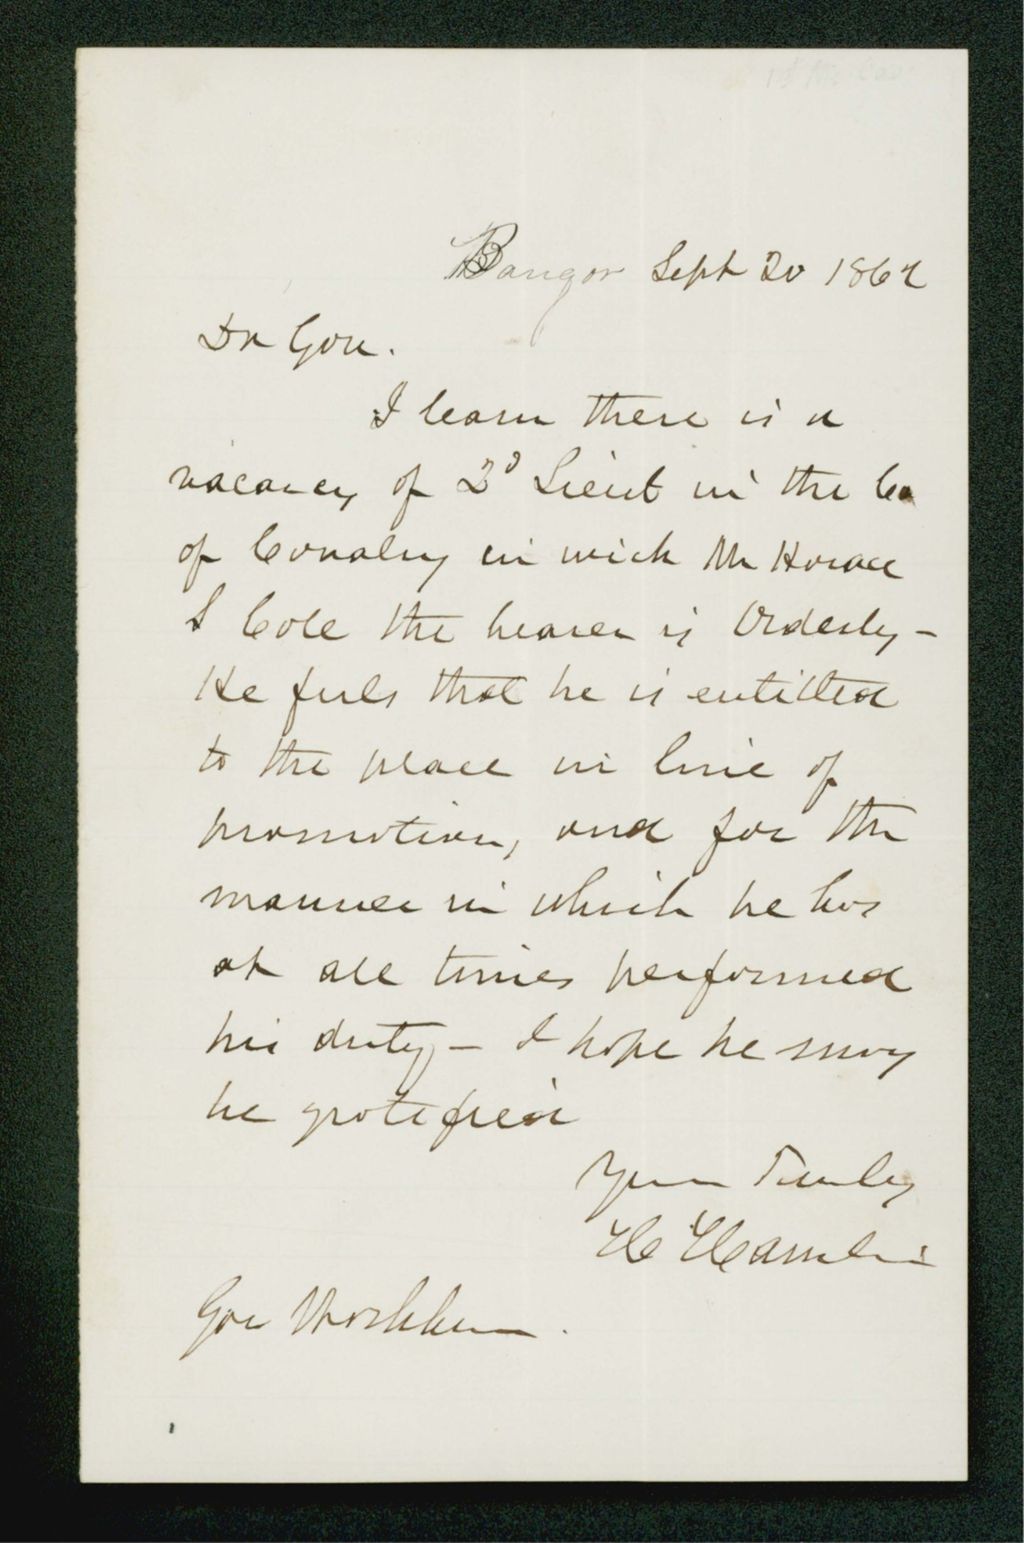 1st Me Cav
Bangor Sept 20 1862
Dr Gov.
I learn there is a
vacancy of 2d Lieut in the Co
of Cavalry in wich Mr Horace
S Cole the bearer is Orderly -
He feels that he is entitled
to the place in line of
promotion, and for the
manner in which he has
at all times performed
his duty - I hope he may
be gratified
Yours Truly
H Hamlin
Gov Washburn.